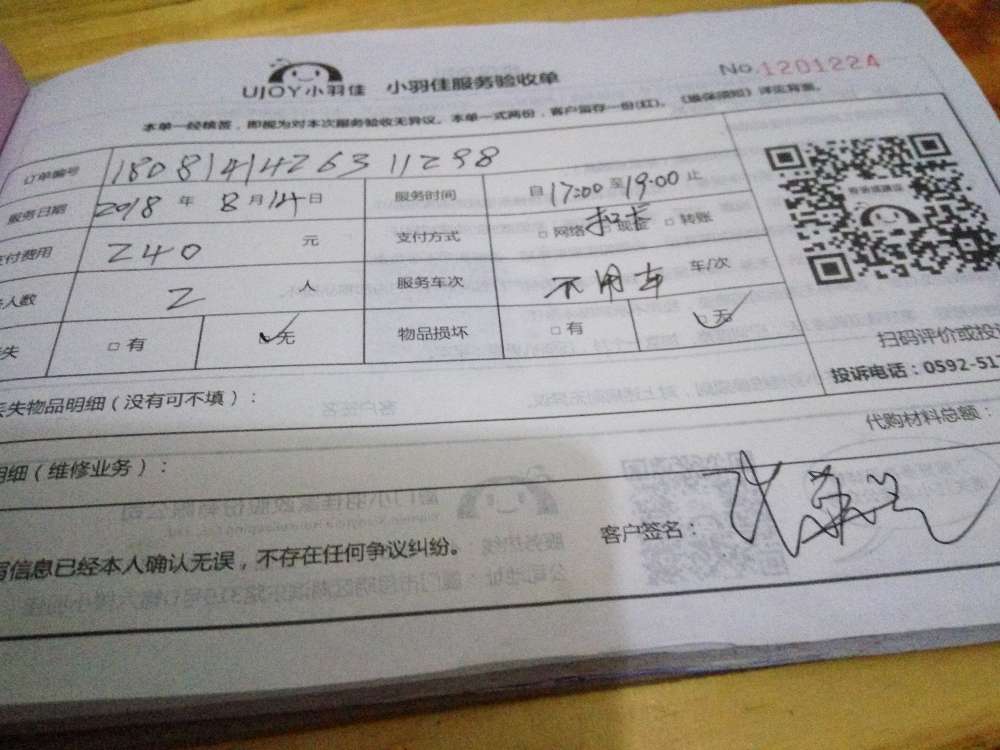 UJOY小羽佳 小羽佳服务验收单 No.1201224
本单一经核签，即视为对本次服务验收无异议。本单一式两份，客户留存一份(红)。《被保须知》详见背面。
订单编号 180814142631 1298
服务日期 2018 年 8 月 14 日 服务时间 自 17:00 至 19:00 止
付费用 240 元 支付方式 □ 网络 □ 现金 □ 转账
人数 2 人 服务车次 不用车 车/次
失 □ 有 ✓无 物品损坏 □ 有 ✓无
扫码评价或投
投诉电话：0592-51
丢失物品明细（没有可不填）：
代购材料总额：
明细（维修业务）：
写信息已经本人确认无误，不存在任何争议纠纷。 客户签名：